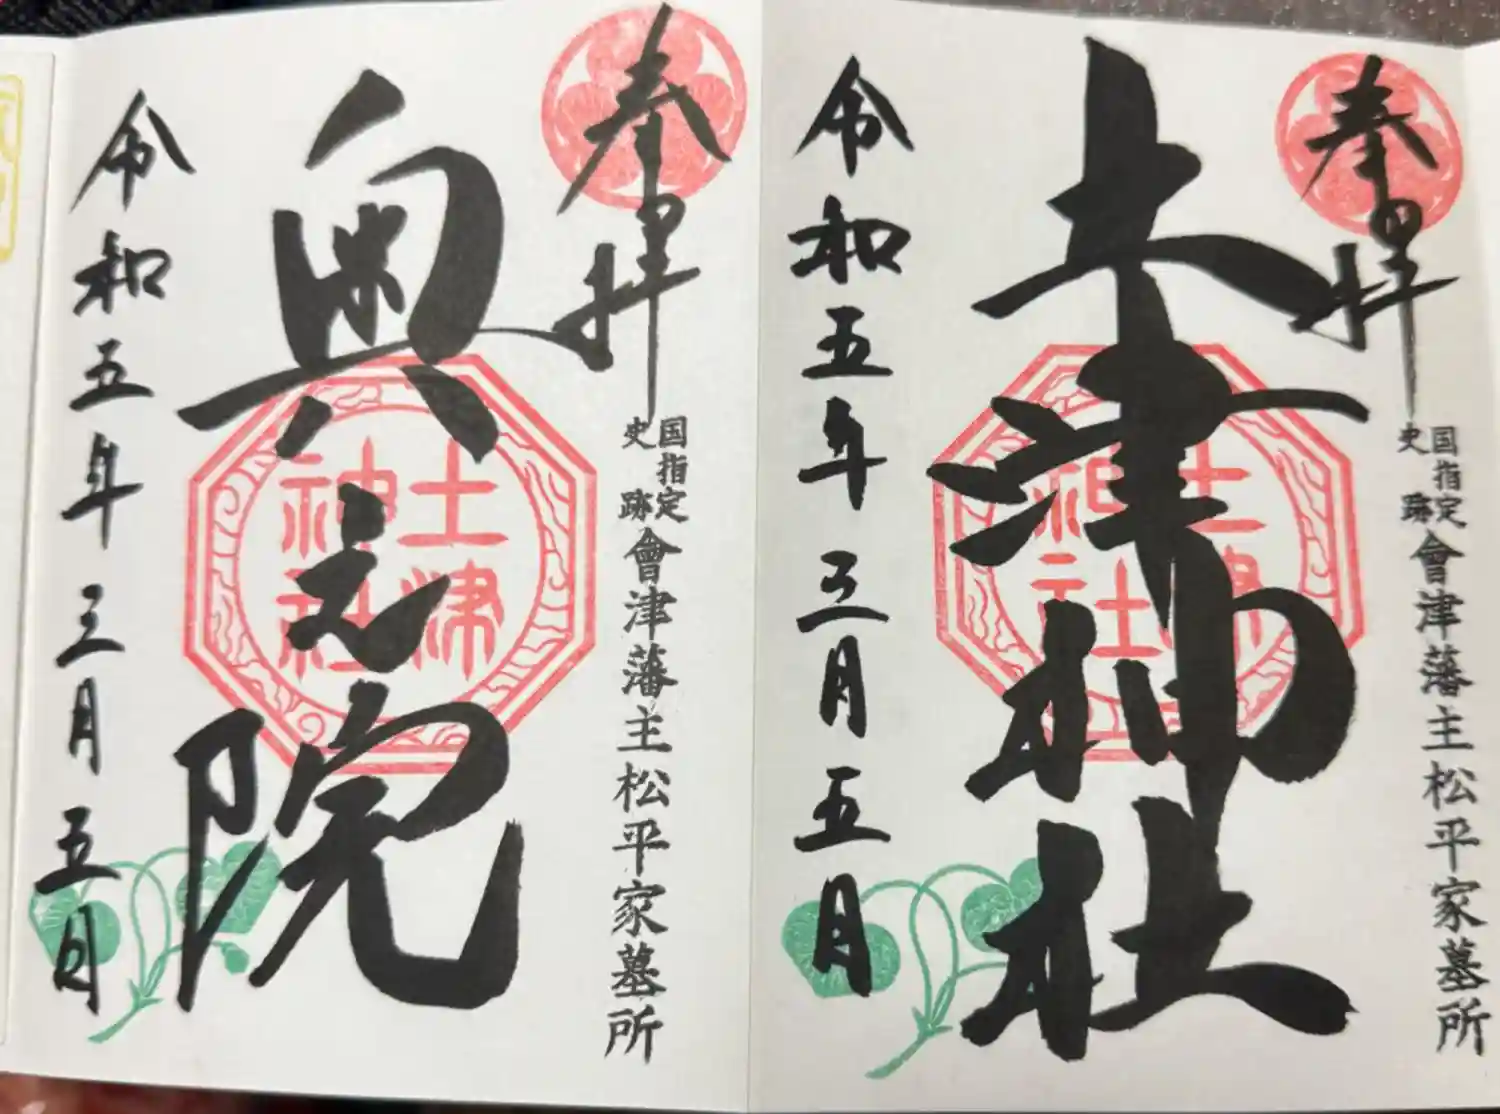 奉拝
国指定
史跡
會津藩主松平家墓所
土津神社
土津
神社
令和五年三月五日
奉拝
国指定
史跡
會津藩主松平家墓所
奥之院
土津
神社
令和五年三月五日